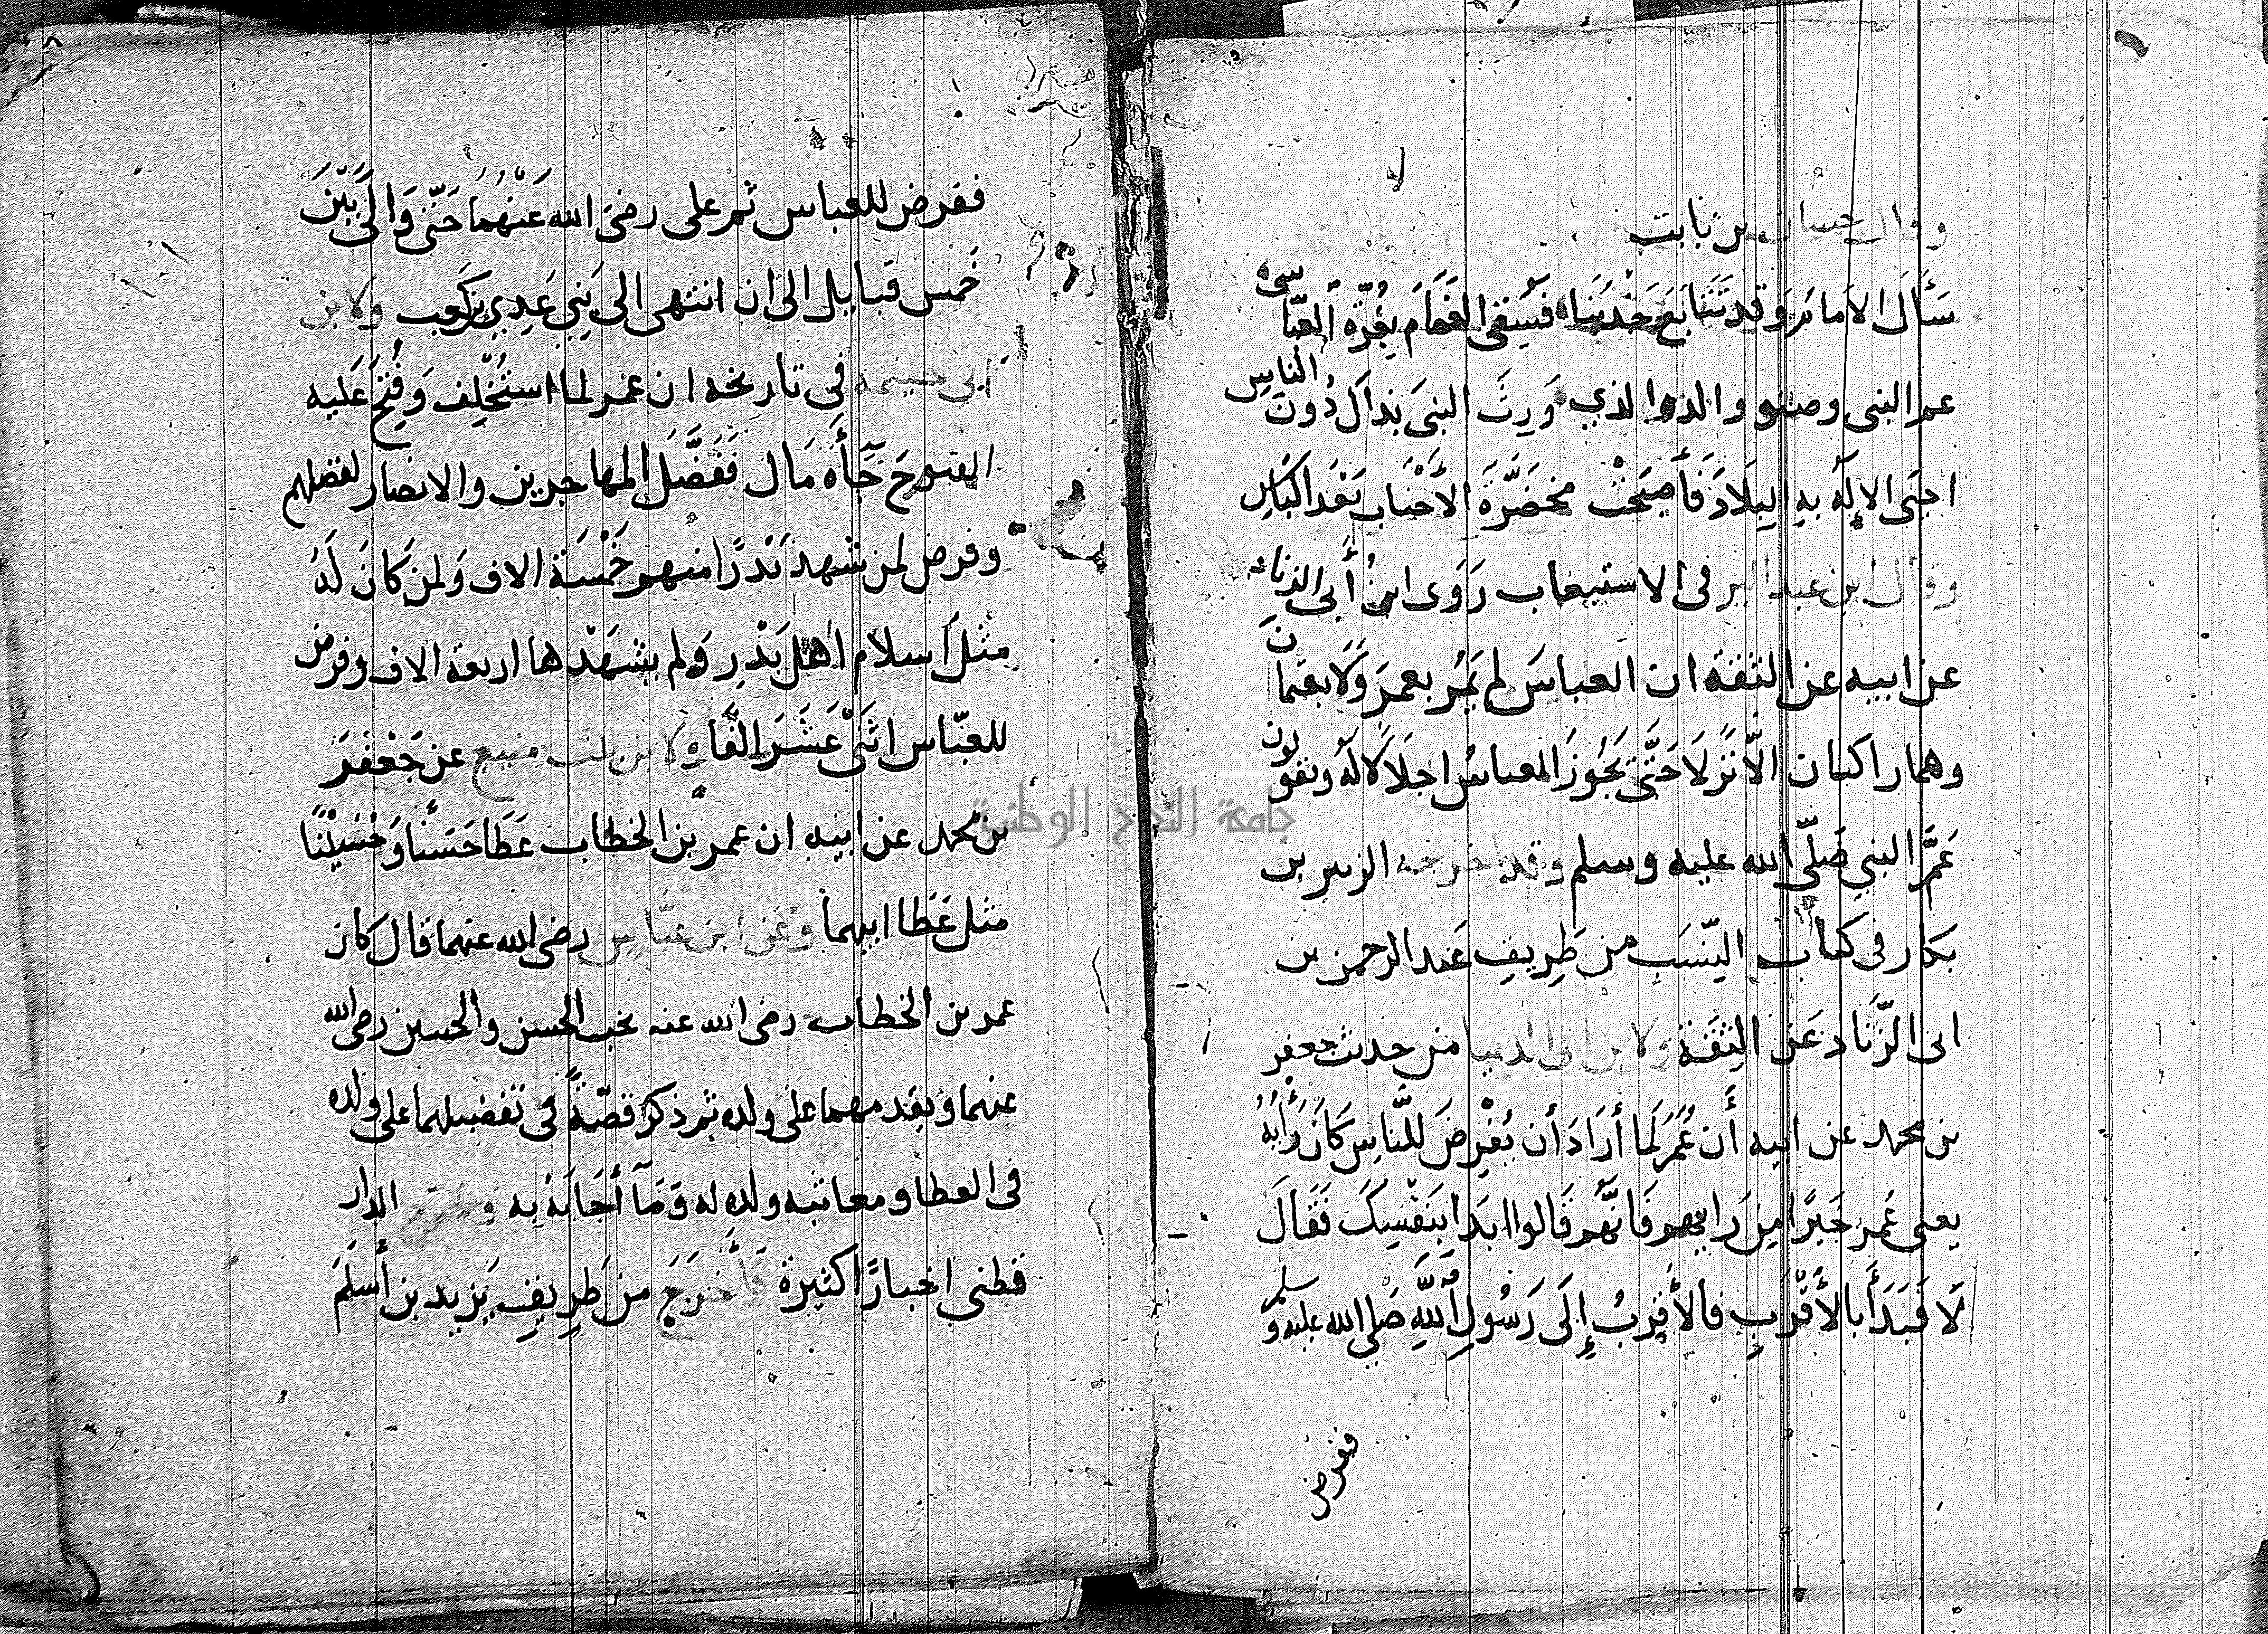 وقال حسان بن ثابت
سَأَلَ الامام وَقد تَتَابَعَ جَدْبُنَا فَسَقَى الغَمَام بِغُرّةِ العبّاسِ
عم النبى وصنو والده الذي وَرِثَ النبىَ بذاك دُونَ الناسِ
احيَى الإلَهُ بهِ البِلَادَ فَأَصبَحَتْ مخضَرَّةَ الأَجْنَابِ بَعْدَ اليَاسِ
وقال ابن عبد البر فى الاستيعاب رَوَى ابنُ أَبى الزناد
عن ابيه عن الثقة ان العباسَ لم يَمُر بعمرَ وَلَا بعثمانَ
وهما راكبان الَّا نَزَلَا حَتَّى يَجُوزَ العباسُ اجلَالًا لَهُ ويقولون
عَمَّ النبي صَلّى الله عليه وسلم وقد اخرجه الزبير بن
بكار فى كتاب النّسَبِ من طَرِيقِ عَبد الرحمن بن
ابى الزِّنَاد عَن الثِقَة ولابن ابى الدنيا من حديث جعفر
بن محمد عن ابيه أَن عُمَرَ لَمَا أرَادَ أن يَفْرِضَ للنَّاسِ كَانَ رَأيُهُ
يعنى عُمر خَيرًا مِن رَايهم فَانَّهم قَالوا ابدَا بِنَفْسِكَ فَقَالَ
لَا فَبَدَأَ بالأَقْرَبِ فالأَقرَبُ إِلَى رَسُولِ اللَّهِ صَلى الله عليه وسلم
ففرض
ففرض للعباس ثم على رضىَ الله عَنْهُمَا حَتّى وَالَى بَيْنَ
خَمس قبايل الى ان انتهى الى بَنِي عَدِي بن كَعب ولابن
ابى خيثمة فِي تاريخه ان عمر لما استُخْلِف وَفُتِحَ عَليه
الفتوحَ جَآَه مَال فَفَضَّلَ المهاجرين والانصار لفضلهم
وفرض لمن شهد بَدْرًا منهم خَمْسَة الاف وَلمن كَانَ لَهُ
مثلَ اسلام أهل بَدْرٍ وَلم يشهَدْها اربعة الاف وفرض
للعبّاس اثنَىْ عَشَرَ الفًا ولابن بنت منيع عن جَعْفَرَ
بن محمد عن ابيهِ ان عمر بن الخطاب عَطَا حَسَنًا وَحُسَيْنًا
مثل عَطَا ابيهما وَعَن ابن عبّاسٍ رضى الله عنهما قال كان
عمر بن الخطاب رضى الله عنه يحب الحسن والحسين رضى الله
عنهما ويقدمهما على ولده ثم ذكر قصّةً فى تفضيلهما على ولده
فى العطا ومعاتبه ولده له وَمَا أَجَابَهُ به وخرّج الدار
قطنى اخبارًا كثيرة فَأَخرَجَ من طَرِيقِ يَزيد بن أَسلَمَ